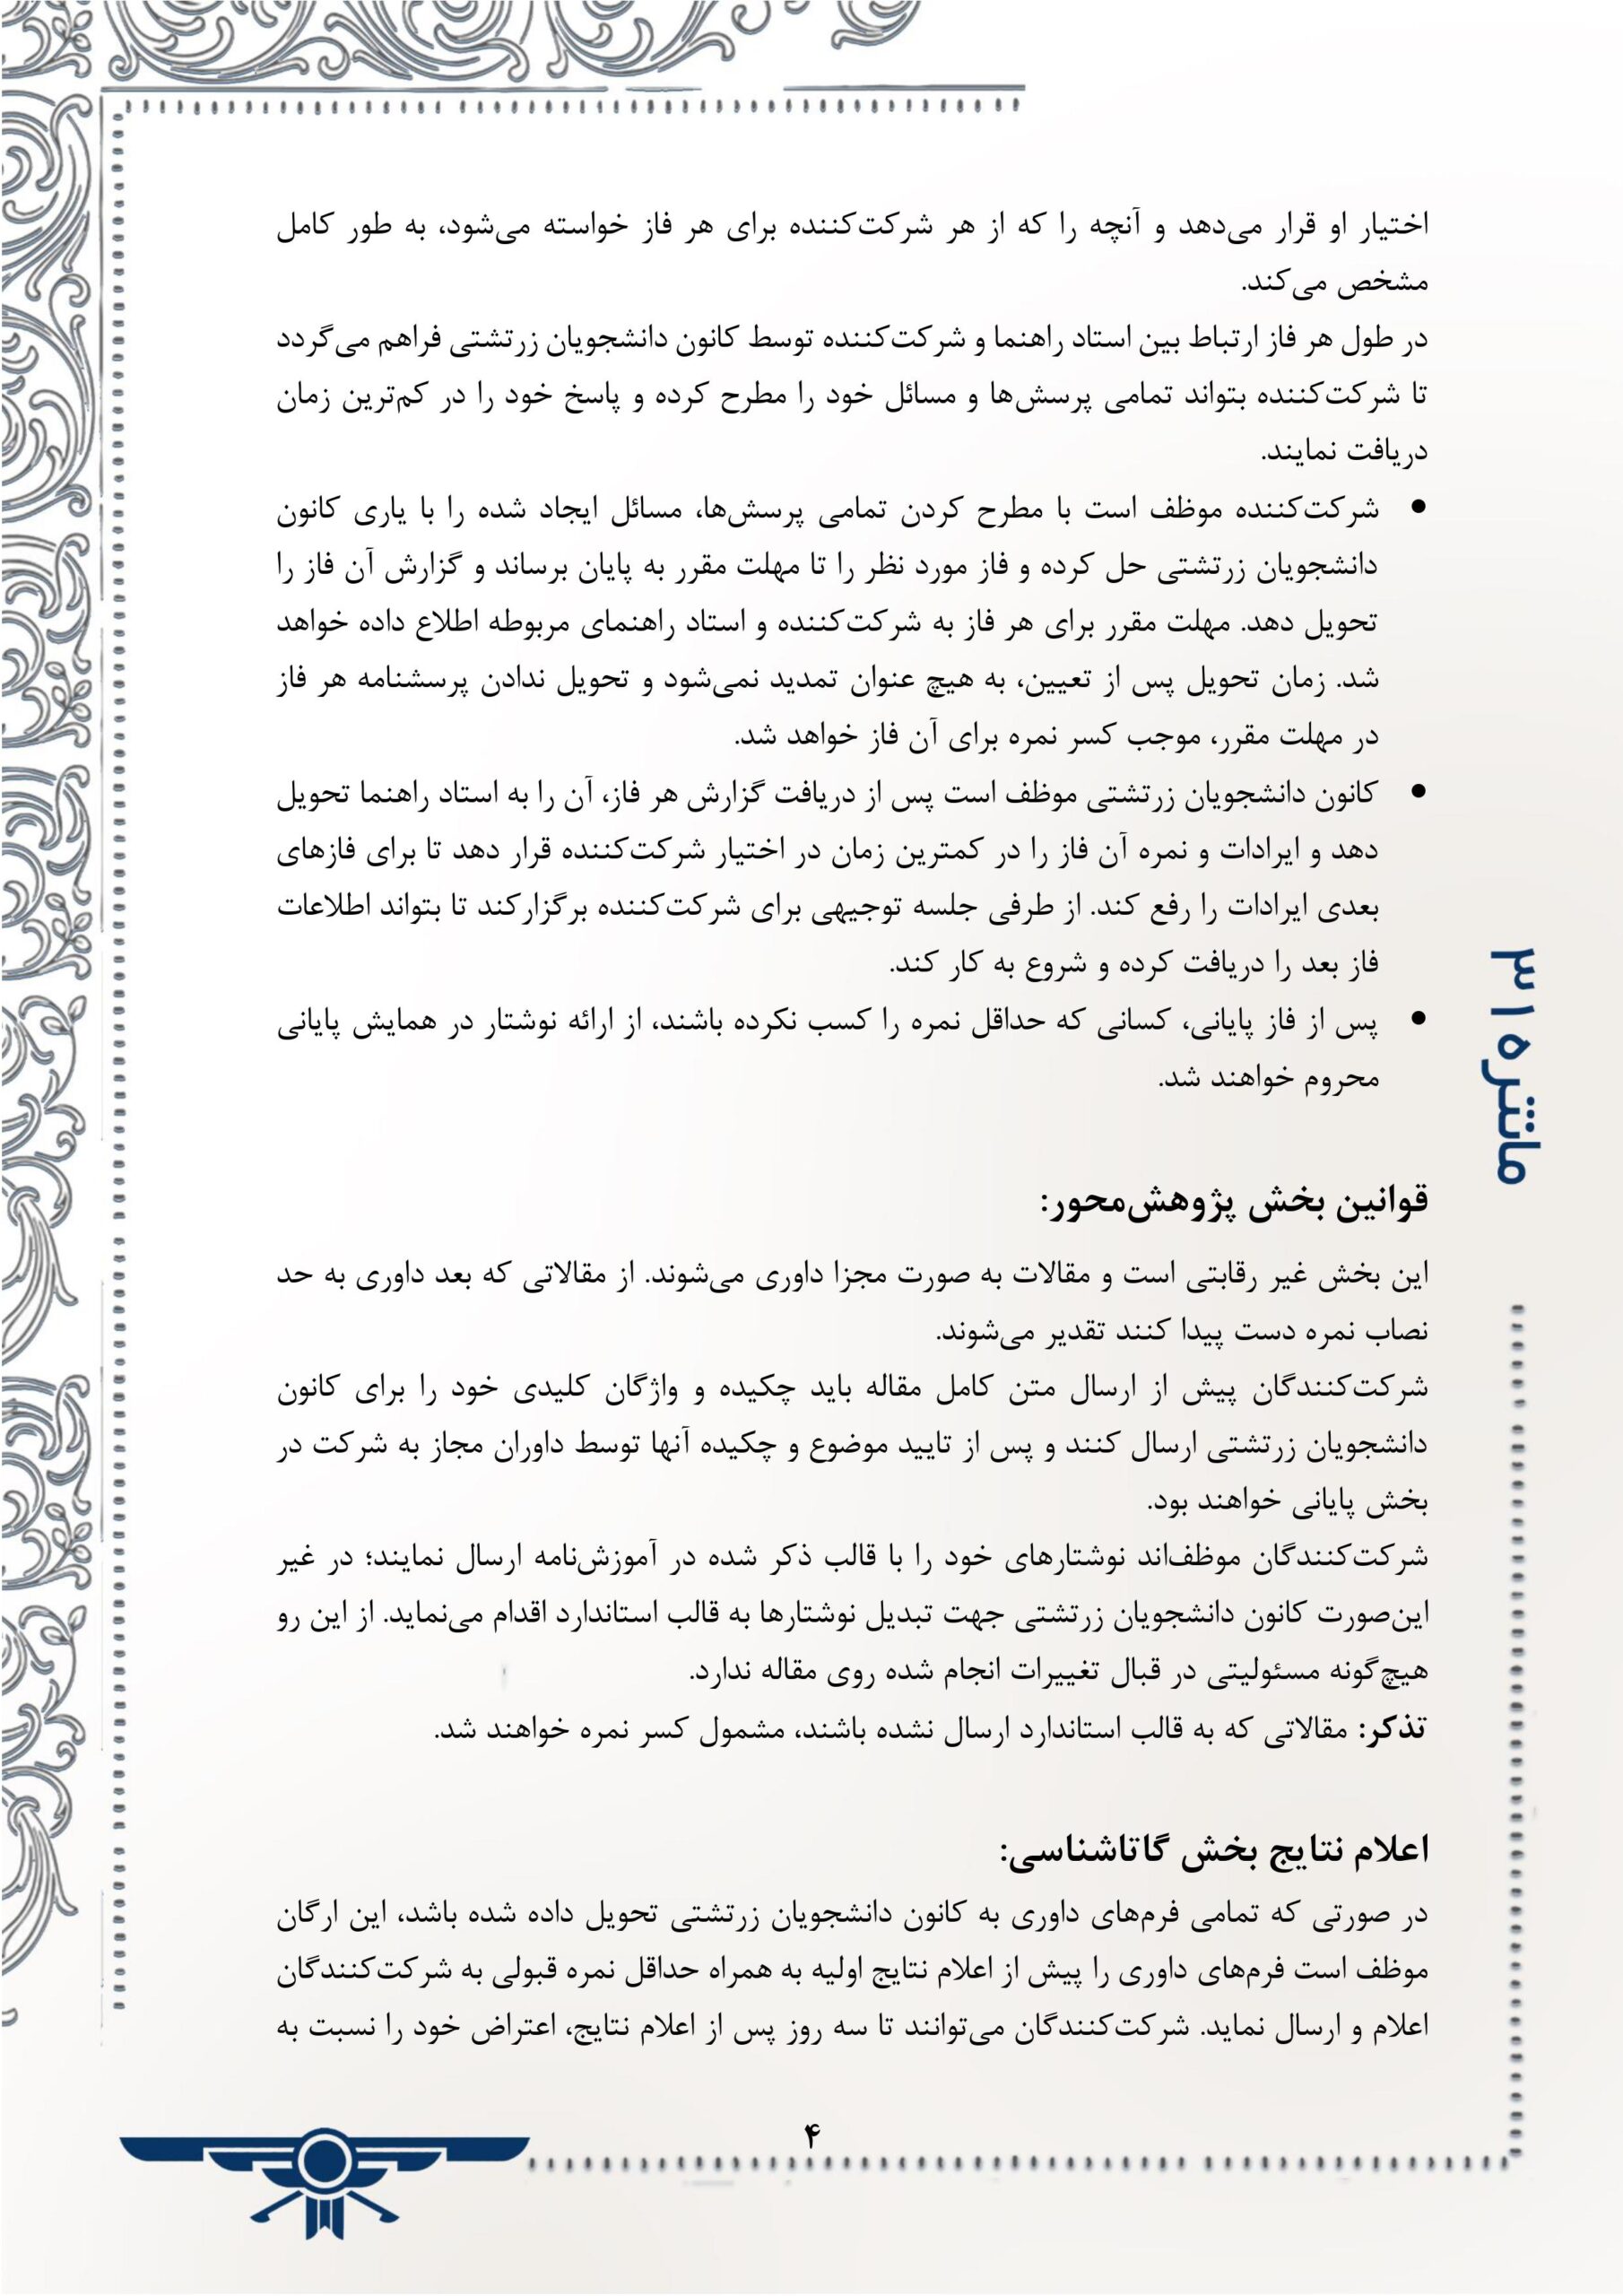 اختیار او قرار می‌دهد و آنچه را که از هر شرکت‌کننده برای هر فاز خواسته می‌شود، به طور کامل
مشخص می‌کند.
در طول هر فاز ارتباط بین استاد راهنما و شرکت‌کننده توسط کانون دانشجویان زرتشتی فراهم می‌گردد
تا شرکت‌کننده بتواند تمامی پرسش‌ها و مسائل خود را مطرح کرده و پاسخ خود را در کم‌ترین زمان
دریافت نمایند.
● شرکت‌کننده موظف است با مطرح کردن تمامی پرسش‌ها، مسائل ایجاد شده را با یاری کانون
دانشجویان زرتشتی حل کرده و فاز مورد نظر را تا مهلت مقرر به پایان برساند و گزارش آن فاز را
تحویل دهد. مهلت مقرر برای هر فاز به شرکت‌کننده و استاد راهنمای مربوطه اطلاع داده خواهد
شد. زمان تحویل پس از تعیین، به هیچ عنوان تمدید نمی‌شود و تحویل ندادن پرسشنامه هر فاز
در مهلت مقرر، موجب کسر نمره برای آن فاز خواهد شد.
● کانون دانشجویان زرتشتی موظف است پس از دریافت گزارش هر فاز، آن را به استاد راهنما تحویل
دهد و ایرادات و نمره آن فاز را در کمترین زمان در اختیار شرکت‌کننده قرار دهد تا برای فازهای
بعدی ایرادات را رفع کند. از طرفی جلسه توجیهی برای شرکت‌کننده برگزارکند تا بتواند اطلاعات
فاز بعد را دریافت کرده و شروع به کار کند.
● پس از فاز پایانی، کسانی که حداقل نمره را کسب نکرده باشند، از ارائه نوشتار در همایش پایانی
محروم خواهند شد.
مانتره ۳۱
قوانین بخش پژوهش‌محور:
این بخش غیر رقابتی است و مقالات به صورت مجزا داوری می‌شوند. از مقالاتی که بعد داوری به حد
نصاب نمره دست پیدا کنند تقدیر می‌شوند.
شرکت‌کنندگان پیش از ارسال متن کامل مقاله باید چکیده و واژگان کلیدی خود را برای کانون
دانشجویان زرتشتی ارسال کنند و پس از تایید موضوع و چکیده آنها توسط داوران مجاز به شرکت در
بخش پایانی خواهند بود.
شرکت‌کنندگان موظف‌اند نوشتارهای خود را با قالب ذکر شده در آموزش‌نامه ارسال نمایند؛ در غیر
این‌صورت کانون دانشجویان زرتشتی جهت تبدیل نوشتارها به قالب استاندارد اقدام می‌نماید. از این رو
هیچ‌گونه مسئولیتی در قبال تغییرات انجام شده روی مقاله ندارد.
تذکر: مقالاتی که به قالب استاندارد ارسال نشده باشند، مشمول کسر نمره خواهند شد.
اعلام نتایج بخش گاتاشناسی:
در صورتی که تمامی فرم‌های داوری به کانون دانشجویان زرتشتی تحویل داده شده باشد، این ارگان
موظف است فرم‌های داوری را پیش از اعلام نتایج اولیه به همراه حداقل نمره قبولی به شرکت‌کنندگان
اعلام و ارسال نماید. شرکت‌کنندگان می‌توانند تا سه روز پس از اعلام نتایج، اعتراض خود را نسبت به
۴